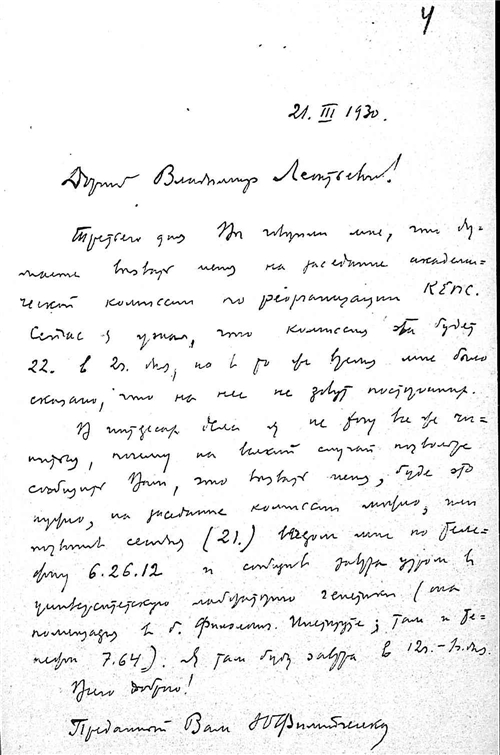 4
21. III 1930.
Дорогой Владимир Леонтьевич!
Третьего дня Вы говорили мне, что ду-
маете вызвать меня на заседание академи-
ческой комиссии по реорганизации КЕПС.
Сейчас я узнал, что комиссия эта будет
22. в 2ч. дня, но в то же время мне было
сказано, что на нее не зовут посторонних.
В интересах дела я не хочу все же
почему на всякий случай позволю
сообщить Вам, что вызвать меня, буде это
нужно, на заседание комиссии можно, или
позвонив сегодня (21.) вечером мне по теле-
фону 6.26.12 и сообщив завтра утром в
университетскую лабораторию генетики (она
помещается в б. Физиолог. Институте; там и те-
лефон 7.64). Я там буду завтра в 12ч.-1ч. дня.
Всего доброго!
Преданный Вам ЮФилипченко